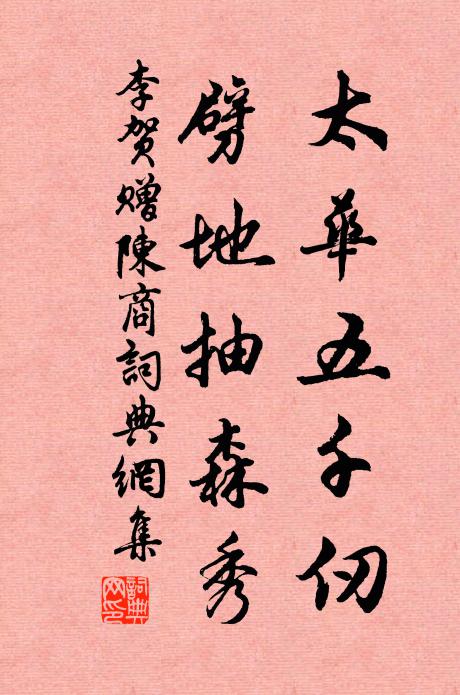 太華五千仞
劈地抽森秀
李贺赠陳商詞典網集
詞典网印